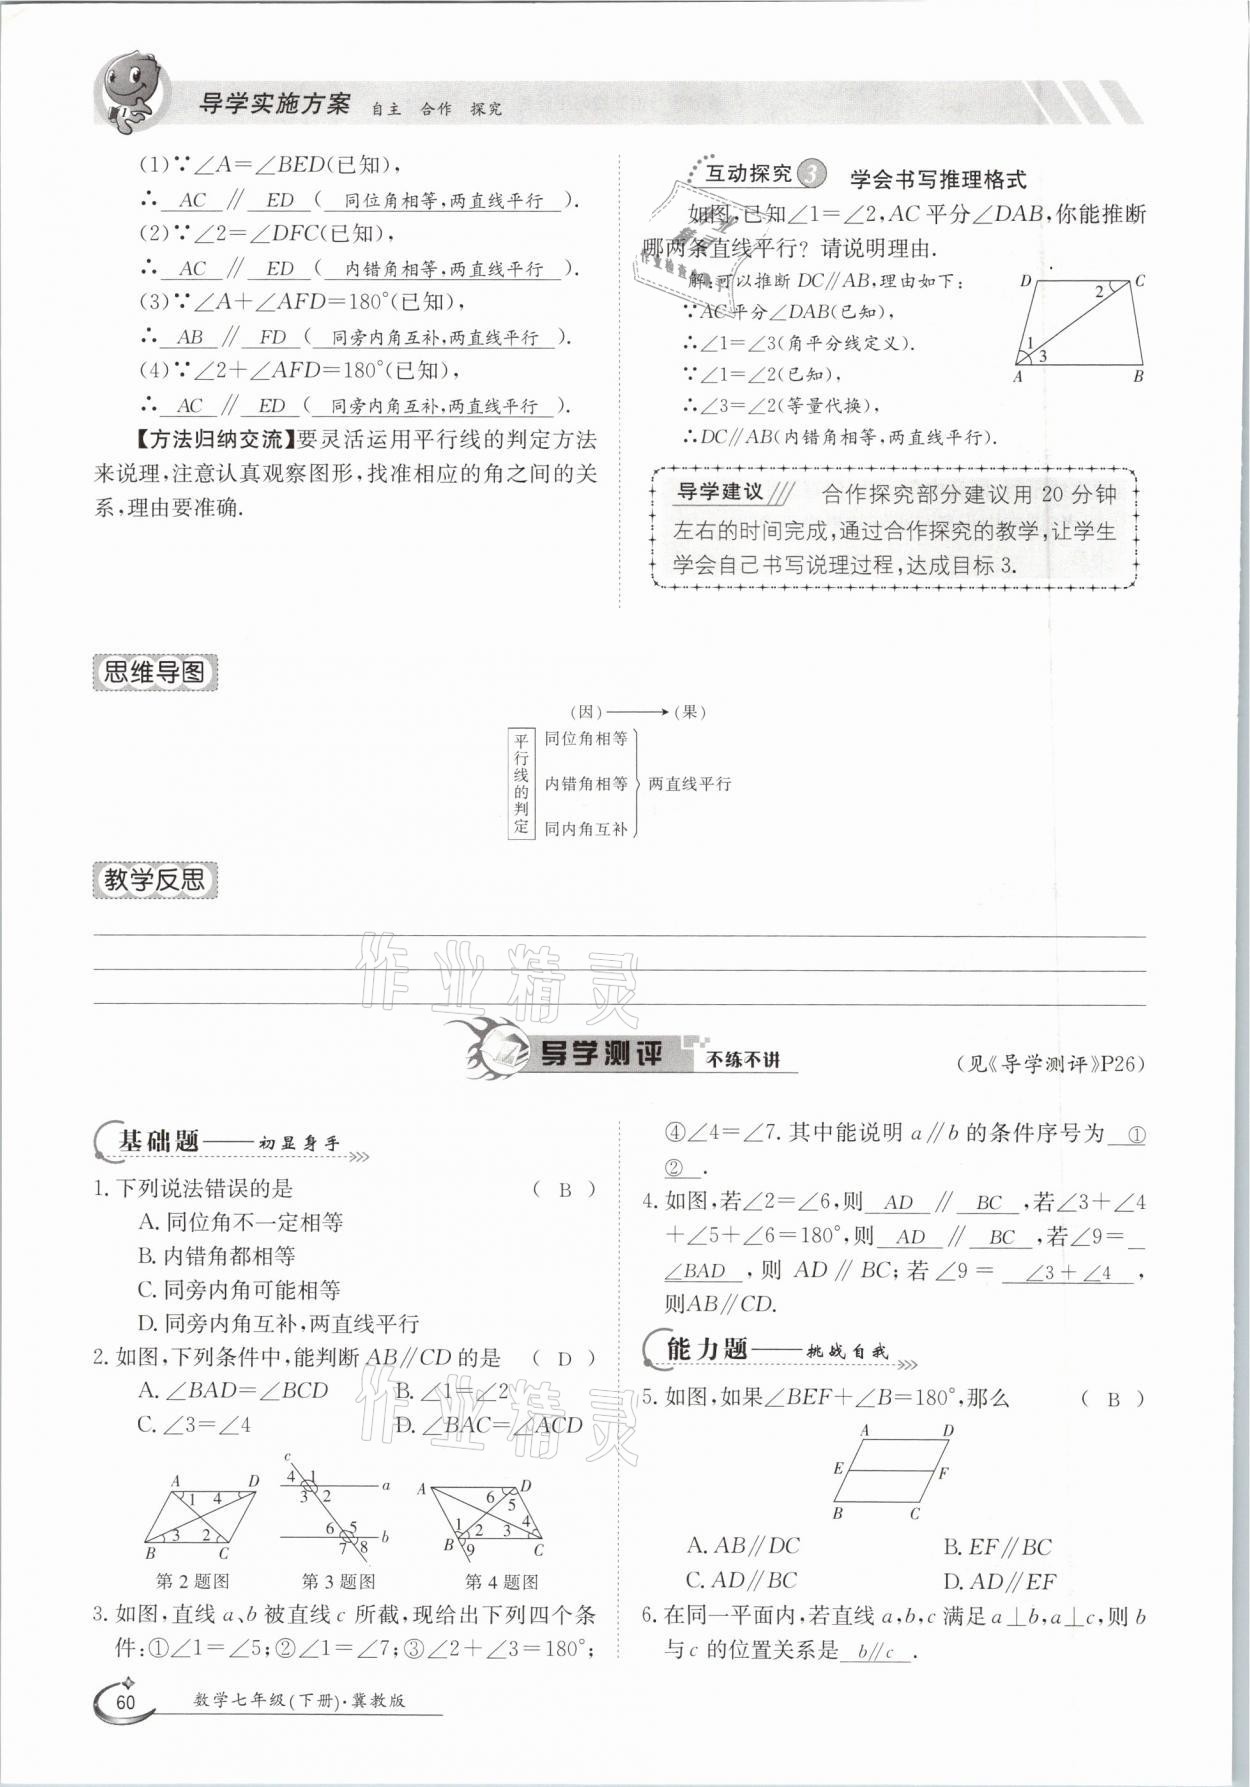 导学实施方案 自主 合作 探究
(1)∵∠A=∠BED(已知),
∴ AC ∥ ED ( 同位角相等,两直线平行 ).
(2)∵∠2=∠DFC(已知),
∴ AC ∥ ED ( 内错角相等,两直线平行 ).
(3)∵∠A+∠AFD=180°(已知),
∴ AB ∥ FD ( 同旁内角互补,两直线平行 ).
(4)∵∠2+∠AFD=180°(已知),
∴ AC ∥ ED ( 同旁内角互补,两直线平行 ).
【方法归纳交流】要灵活运用平行线的判定方法
来说理,注意认真观察图形,找准相应的角之间的关
系,理由要准确.
互动探究 3 学会书写推理格式
如图,已知∠1=∠2,AC平分∠DAB,你能推断
哪两条直线平行?请说明理由.
解:可以推断DC∥AB,理由如下:
∵AC平分∠DAB(已知),
∴∠1=∠3(角平分线定义).
∵∠1=∠2(已知),
∴∠3=∠2(等量代换),
∴DC∥AB(内错角相等,两直线平行).
D C
2
1
3
A B
导学建议 合作探究部分建议用20分钟
左右的时间完成,通过合作探究的教学,让学生
学会自己书写说理过程,达成目标3.
思维导图
(因) (果)
平行线的判定
同位角相等
内错角相等 两直线平行
同内角互补
教学反思
作业精灵
导学测评 不练不讲 (见《导学测评》P26)
基础题——初显身手
1.下列说法错误的是 ( B )
A.同位角不一定相等
B.内错角都相等
C.同旁内角可能相等
D.同旁内角互补,两直线平行
2.如图,下列条件中,能判断AB∥CD的是 ( D )
A.∠BAD=∠BCD B.∠1=∠2
C.∠3=∠4 D.∠BAC=∠ACD
作业精灵
A D 1 4 3 2 B C
c 4 1 a 3 2 6 5 b 7 8
A D 6 5 1 2 3 4 B 9 C
第2题图 第3题图 第4题图
3.如图,直线a、b被直线c所截,现给出下列四个条
件:①∠1=∠5;②∠1=∠7;③∠2+∠3=180°;
④∠4=∠7.其中能说明a∥b的条件序号为 ①
② .
4.如图,若∠2=∠6,则 AD ∥ BC ,若∠3+∠4
+∠5+∠6=180°,则 AD ∥ BC ,若∠9=
∠BAD ,则AD∥BC;若∠9= ∠3+∠4 ,
则AB∥CD.
能力题——挑战自我
5.如图,如果∠BEF+∠B=180°,那么 ( B )
A D
E F
B C
A.AB∥DC B.EF∥BC
C.AD∥BC D.AD∥EF
6.在同一平面内,若直线a,b,c满足a⊥b,a⊥c,则b
与c的位置关系是 b∥c .
60 数学七年级(下册)·冀教版